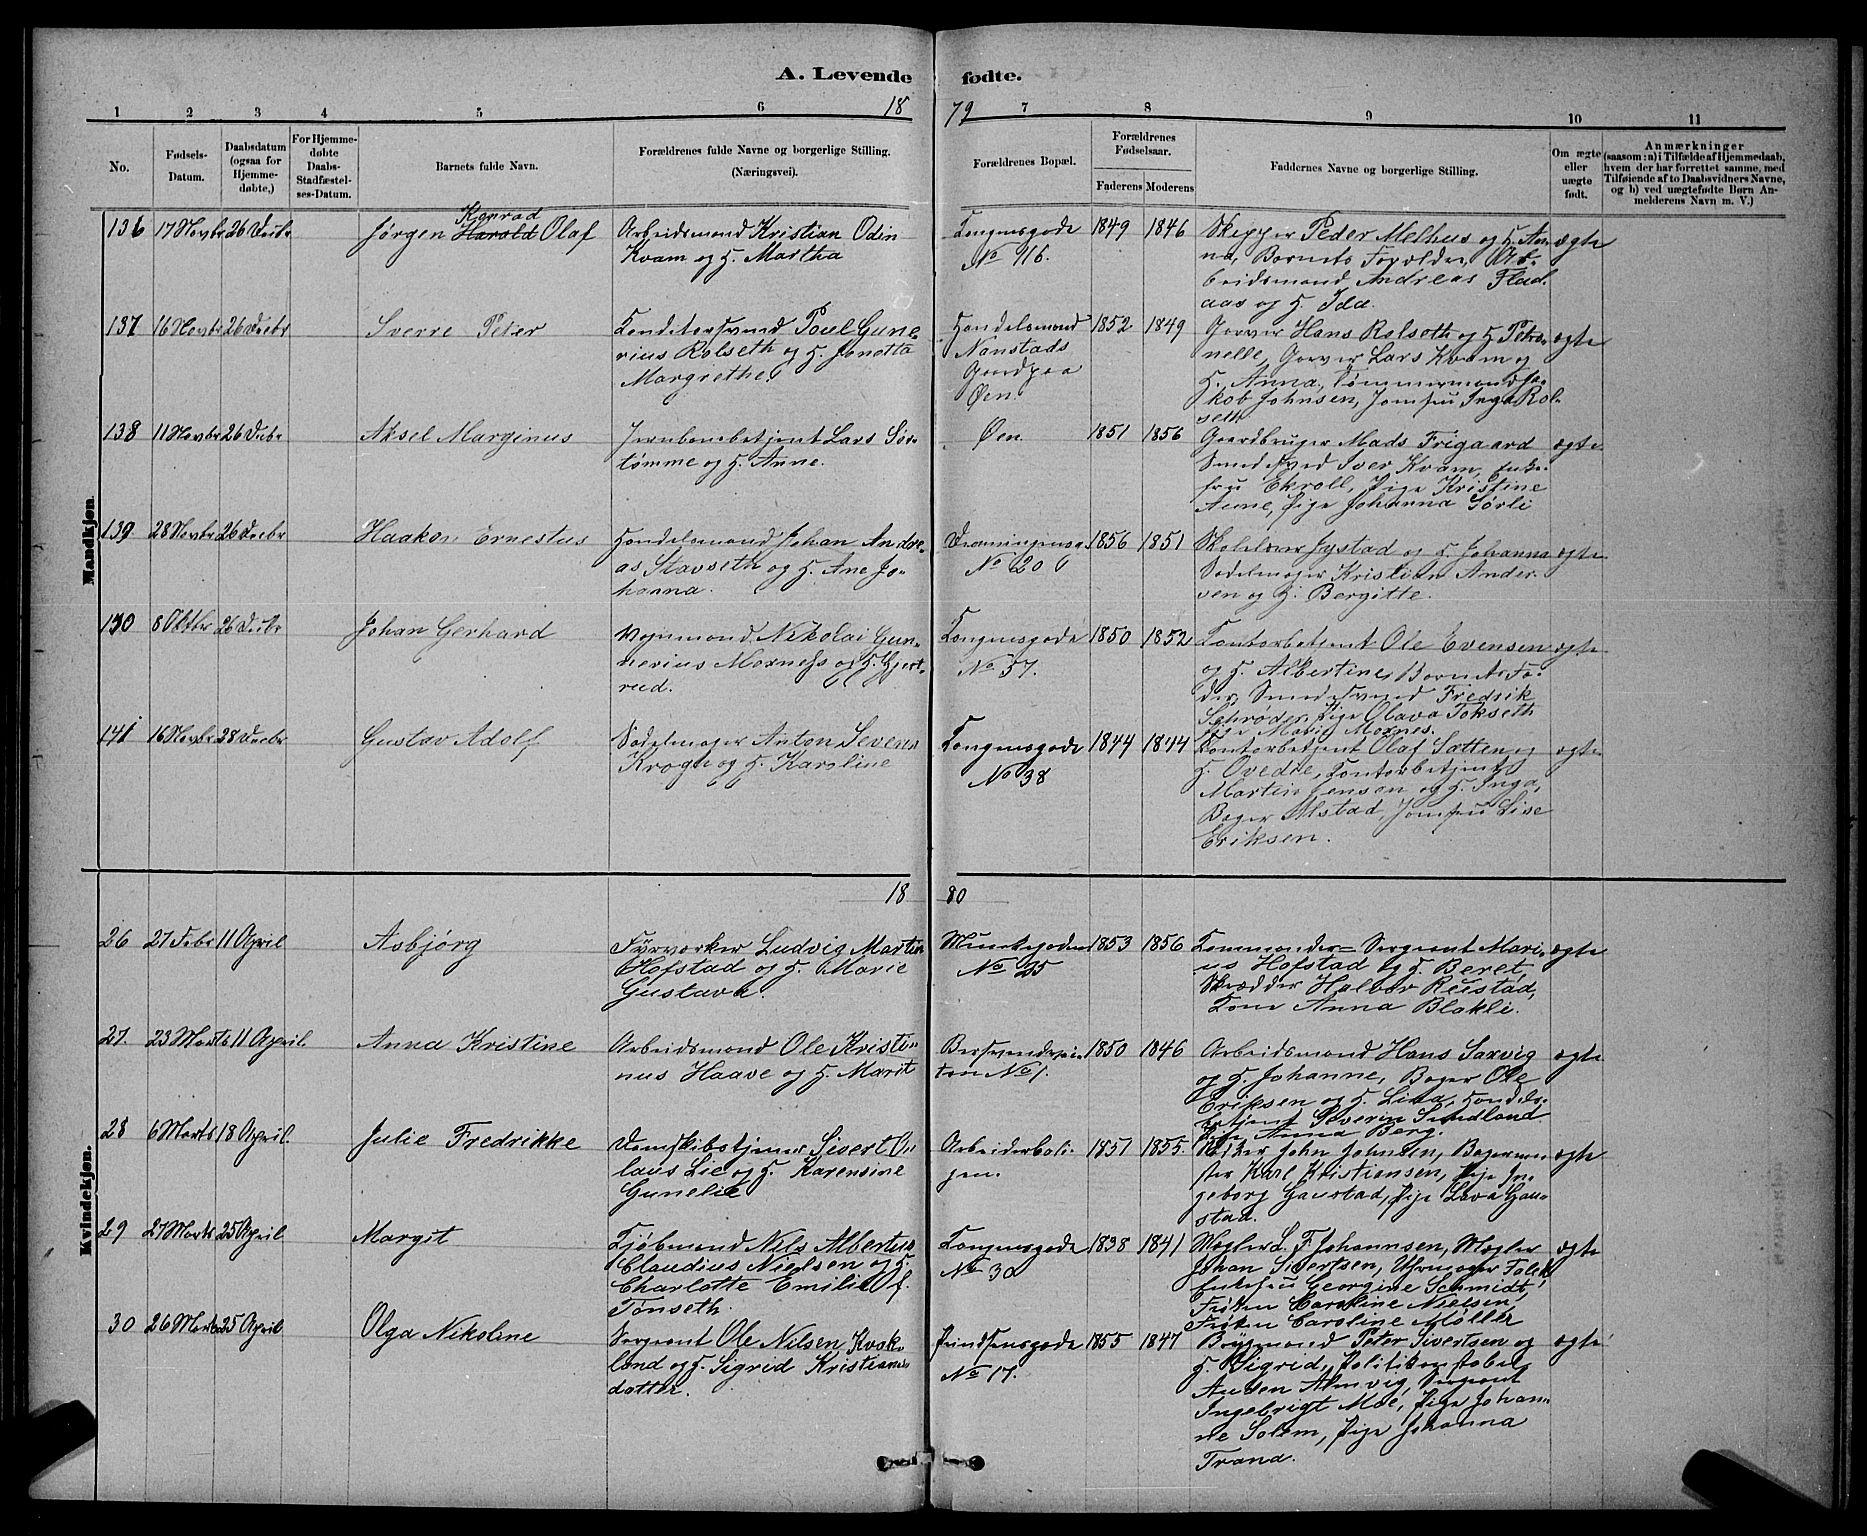 A. Levende fødte.
1 2 3 4 5 6 18 79 7 8 9 10 11
No.
Fødsels-
Datum.
Daabsdatum
(ogsaa for
Hjemme-
døbte,)
For Hjemme-
døbte
Daabs-
Stadfæstel-
ses-Datum.
Barnets fulde Navn.
Forældrenes fulde Navne og borgerlige Stilling.
(Næringsvei).
Forældrenes Bopæl.
Forældrenes
Fødselsaar.
Faderens Moderens
Faddernes Navne og borgerlige Stilling.
Om ægte
eller
uægte
født.
Anmærkninger
(saasom: a) i Tilfælde af Hjemmedaab,
hvem der har forrettet samme, med
Tilføiende af to Daabsvidners Navne,
og b) ved uægtefødte Børn An-
melderens Navn m. V.)
Mandkjøn.
136 17 Novbr 26 Decbr
Konrad
Jørgen Harold Olaf
Arbeidsmand Kristian Odin
Kvam og H. Martha
Kongensgade
No 96.
1849 1846
Skipper Peder Melhus og H. An-
na, Barnets Forældre, Ar-
beidsmand Andreas Flad-
aas og H. Ida.
ægte
137 16 Novbr 26 Decbr
Sverre Peter
Konditorsvend Poul Gune-
rius Rolseth og H. Jonetta
Margrethe.
Handelsmand
Nanstads
Gaard paa
Øen.
1852 1849
Garver Hans Rolseth og H. Petro-
nelle, Garver Lars Kvam og
H. Anna, Tømmermand Ja-
kob Johnsen, Jomfru Inga Rol-
seth
ægte
138 11 Novbr 26 Decbr
Aksel Marginus
Jernbanebetjent Lars Sør-
tømme og H. Anne.
Øen.
1851 1856
Gaardbruger Mads Frigaard
Smedesvend Iver Kvam, Enke-
fru Ekroll, Pige Kristine
Aune, Pige Johanna Sørli
ægte
139 28 Novbr 26 Decbr
Haakon Ernestus
Handelsmand Johan Andre-
as Stavseth og H. Ane Jo-
hanna.
Dronningensg.
No 20
1856 1851
Skolelærer Jystad og H. Johanna
Sadelmager Kristian Ander-
sen og H. Bergitte.
ægte
140 8 Oktbr 26 Decbr
Johan Gerhard
Vognmand Nikolai Gun-
nerius Moxness og H. Gjert-
rud.
Kongensgade
No 57.
1850 1852
Kontorbetjent Ole Evensen
og H. Albertine, Barnets Fa-
der, Smedesvend Fredrik
Schrøder, Pige Olava Tokseth
Pige Marie Moxnes.
ægte
141 16 Novbr 28 Decbr
Gustav Adolf
Sadelmager Anton Severin
Krogh og H. Karoline
Kongensgade
No 38
1844 1844
Kontorbetjent Olaf Sætten og
H. Ovedie, Kontorbetjent
Martin Jensen og H. Inga,
Bager Alstad, Jomfru Lise
Eriksen.
ægte
18 80
Kvindekjøn.
26 27 Febr 11 April
Asbjørg
Fyrværker Ludvig Martin
Hofstad og H. Marie
Gustava.
Munkegaden
No 25
1853 1856
Kommander-Sergeant Mari-
us Hofstad og H. Beret,
Skrædder Halvor Reestad,
Kone Anna Blakli.
ægte
27. 23 Marts 11 April.
Anna Kristine
Arbeidsmand Ole Kristi-
nus Haave og H. Marit
No 1.
1850 1846
Arbeidsmand Hans Saxvig
og H. Johanne, Bager Ole
Eriksen og H. Lina, Handels-
betjent Severin Sundland
Pige Anna Berg.
ægte
28 6 Marts 18 April.
Julie Fredrikke
Dampskibstjener Sivert O-
laus Lie og H. Karensine
Gunelie
Arbeiderboli-
gen.
1851 1855.
John Johnsen, Bagerme-
ster Karl Kristiansen, Pige In-
geborg Gaustad, Pige Lava Gau-
stad.
ægte
29 27 Marts 25 April
Margit
Kjøbmand Nils Albertus
Claudius Nielsen og H.
Charlotte Emilie f.
Tønseth.
Kongensgade
No 30
1838 1841
Mægler L. F. Johannsen, Mægler
Johan Sivertsen, Uhrmager Falck
Enkefru Georgine Schmidt,
Frøken Caroline Nielsen,
Frøken Caroline Møller
ægte
30 26 Marts 25 April
Olga Nikoline
Sergeant Ole Nilsen Kvak-
land og H. Sigrid Kristians-
datter.
Prindsensgade
No 17.
1855 1847
Brygmand Peter Sivertsen og
H. Sigrid, Politikonstabel
Ausen Almvig, Sergeant
Ingebrigt Moe, Pige Johan-
ne Solem, Pige Johanna
Trana.
ægte